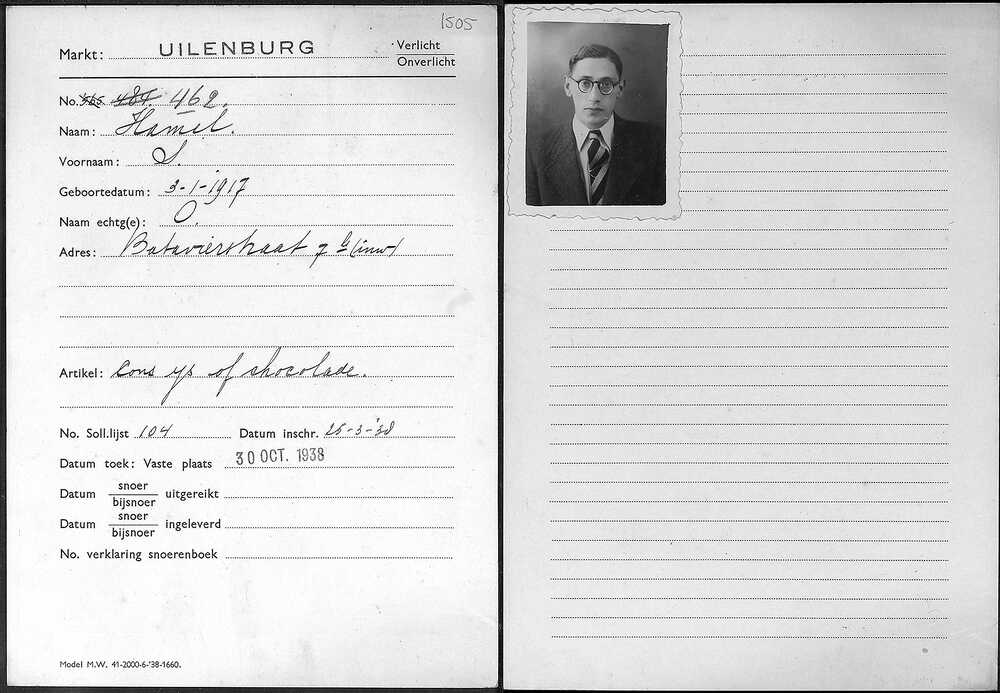 1505
Markt: UILENBURG Verlicht
Onverlicht
No. 565 484. 462.
Naam: Hamel.
Voornaam: S.
Geboortedatum: 3-1-1917
Naam echtg(e): O.
Adres: Batavierstraat 7 b (inw)
Artikel: Cons ys of chocolade.
No. Soll.lijst 104 Datum inschr. 25-3-'38
Datum toek: Vaste plaats 30 OCT. 1938
Datum snoer
bijsnoer uitgereikt
Datum snoer
bijsnoer ingeleverd
No. verklaring snoerenboek
Model M.W. 41-2000-6-'38-1660.